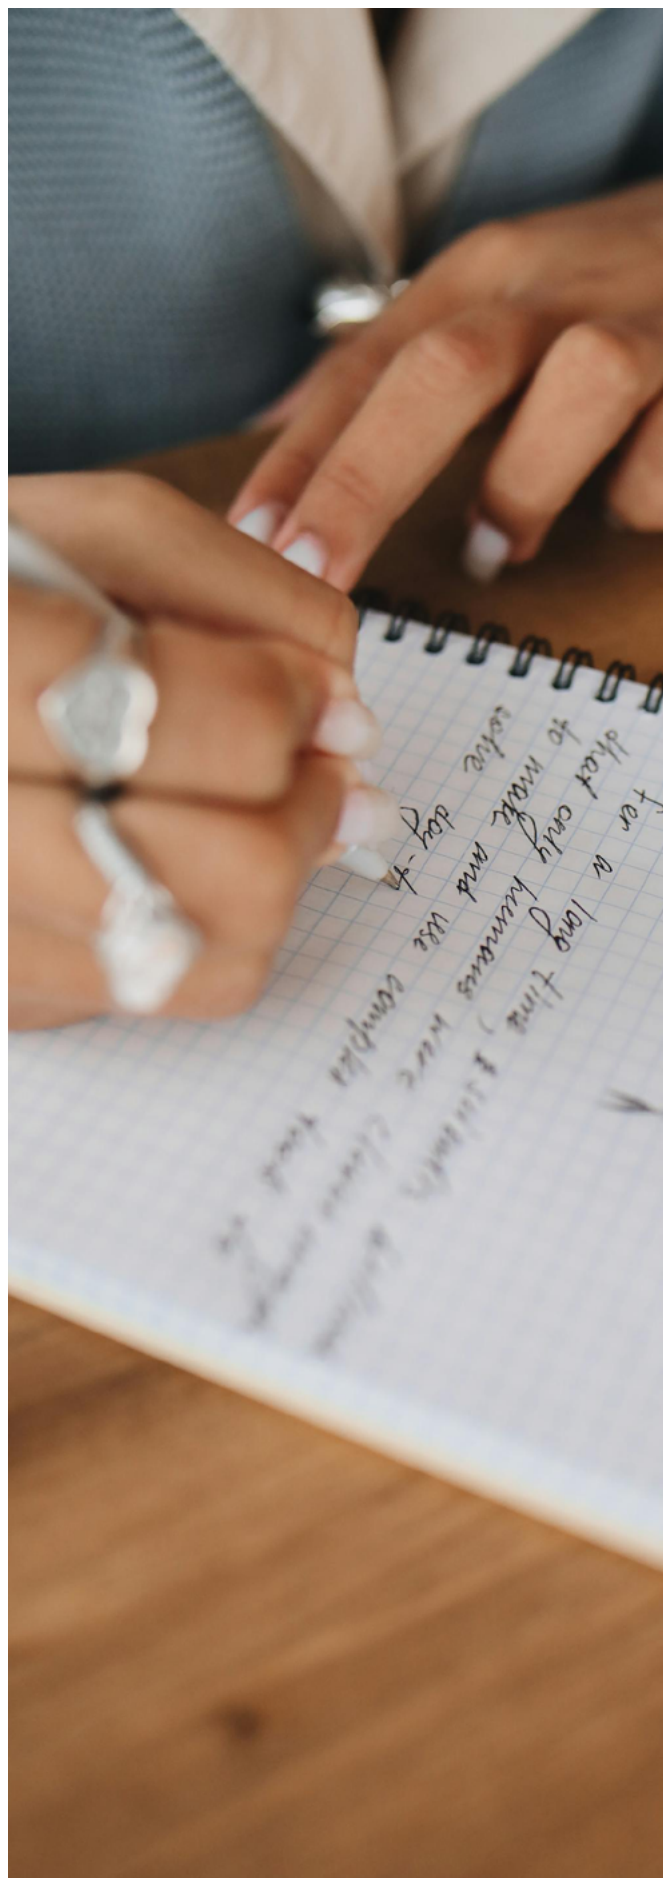 ter a long time, scientists believe
that only humans were clever enough
to make and use complex tools to
solve day-t